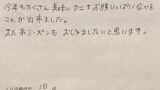 今年もたくさん美味しいカニをお腹いっぱい食べる
ことが出来ました。
また来シーズンも おじゃましたいと思います。
10